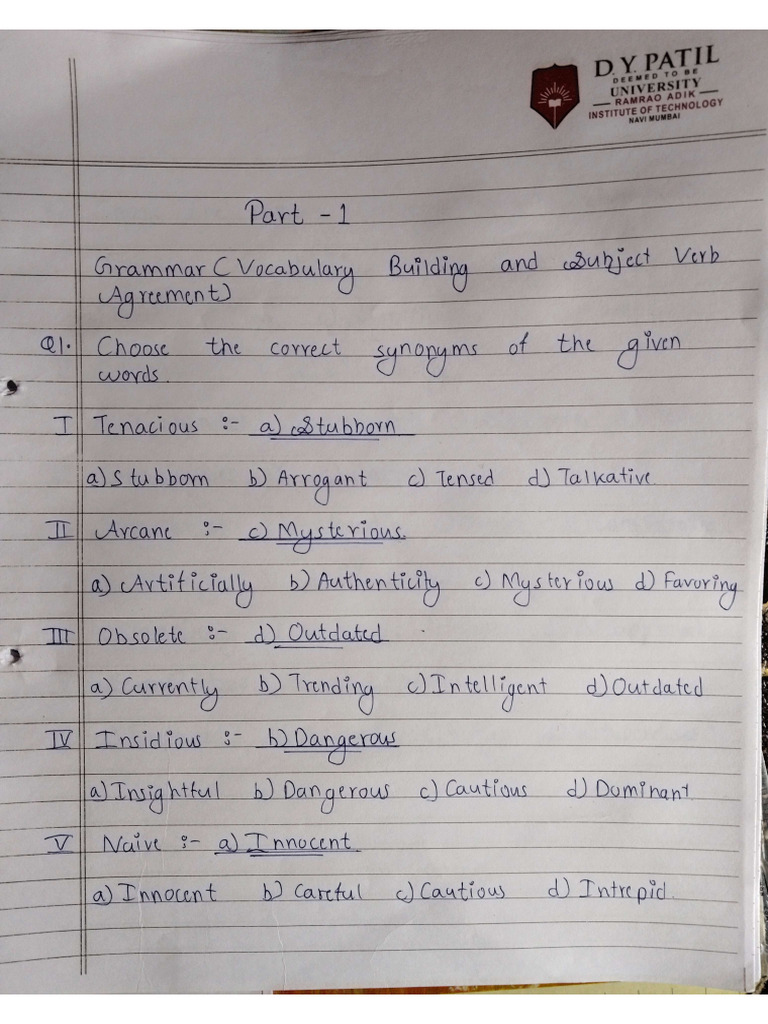 D. Y. PATIL
DEEMED TO BE
UNIVERSITY
— RAMRAO ADIK —
INSTITUTE OF TECHNOLOGY
NAVI MUMBAI
Part - 1
Grammar ( Vocabulary Building and Subject Verb
Agreement)
Q1. Choose the correct synonyms of the given
words.
I Tenacious :- a) Stubborn
a) Stubborn b) Arrogant c) Tensed d) Talkative
II Arcane :- c) Mysterious.
a) Artificially b) Authenticity c) Mysterious d) Favoring
III Obsolete :- d) Outdated
a) Currently b) Trending c) Intelligent d) Outdated
IV Insidious :- b) Dangerous
a) Insightful b) Dangerous c) Cautious d) Dominant
V Naive :- a) Innocent
a) Innocent b) Careful c) Cautious d) Intrepid.